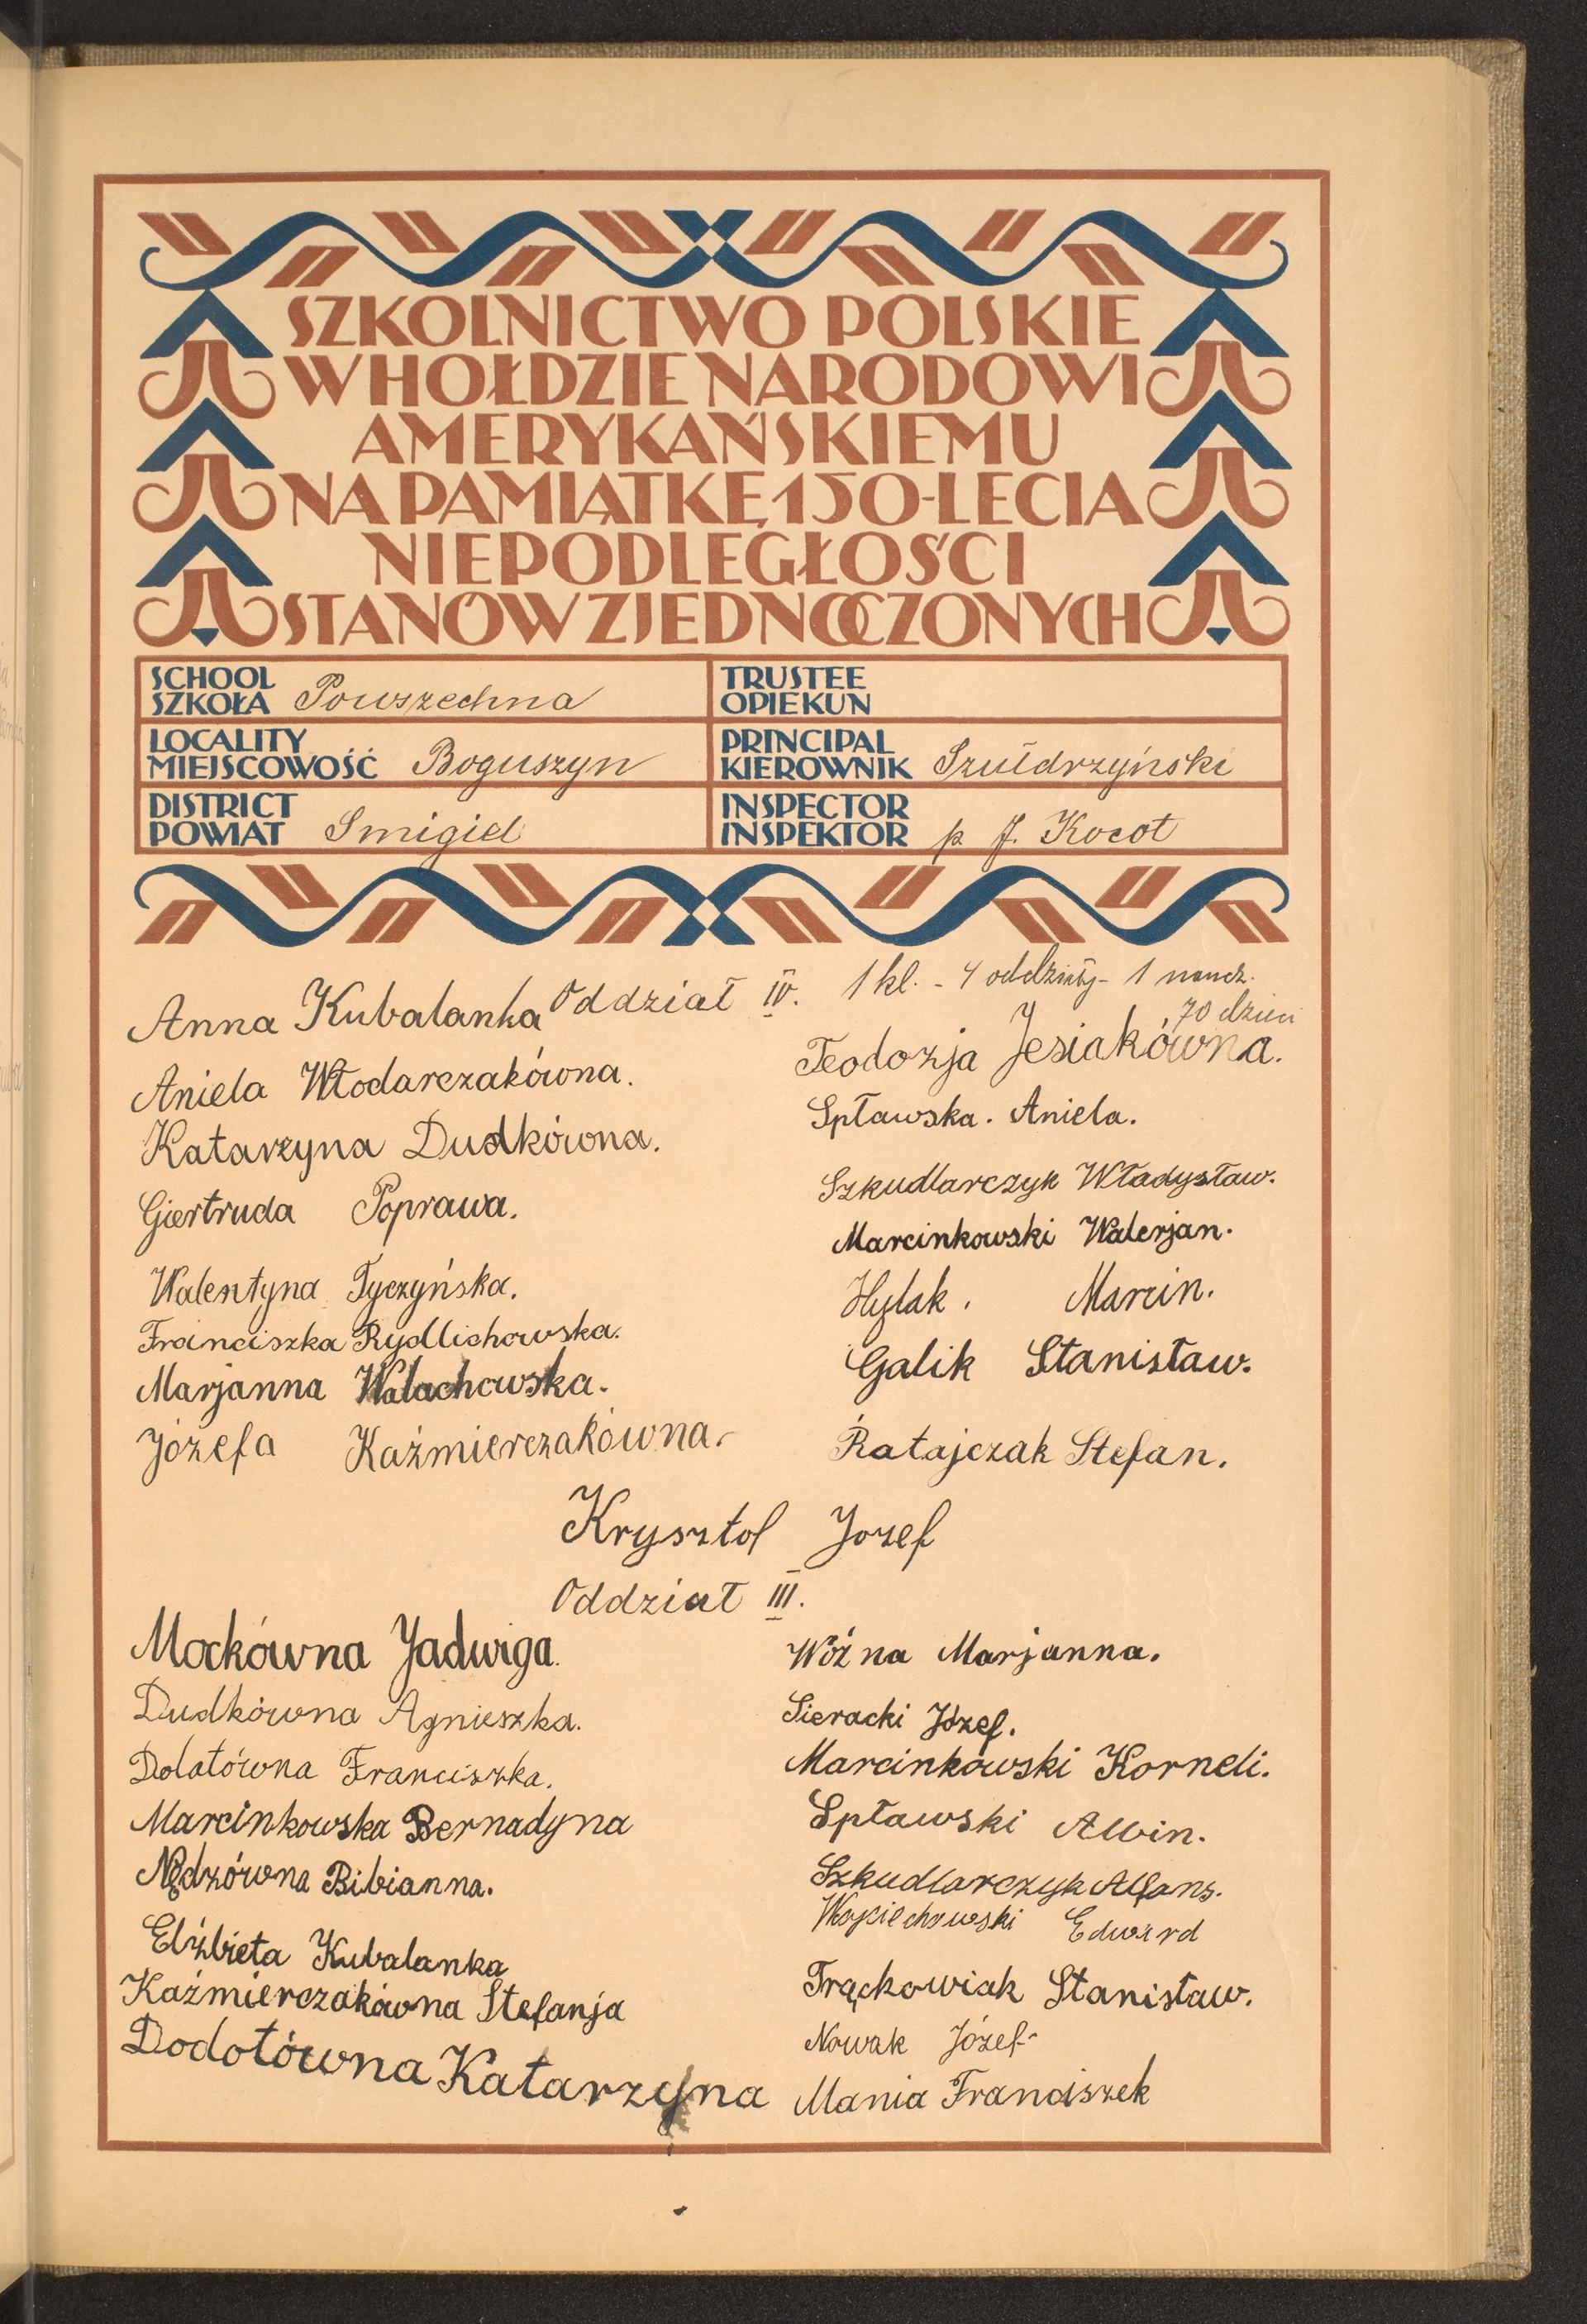 SZKOLNICTWO POLSKIE
W HOŁDZIE NARODOWI
AMERYKAŃSKIEMU
NA PAMIĄTKĘ 150-LECIA
NIEPODLEGŁOŚCI
STANÓW ZJEDNOCZONYCH
SCHOOL
SZKOŁA Powszechna
TRUSTEE
OPIEKUN
LOCALITY
MIEJSCOWOŚĆ Boguszyn
PRINCIPAL
KIEROWNIK Szułdrzyński
DISTRICT
POWIAT Smigiel
INSPECTOR
INSPEKTOR p J. Kocot
Oddział IV. 1 kl. - 4 oddziały - 1 naucz.
, 70 dzieci
Anna Kubalanka
Aniela Włodarczakówna.
Katarzyna Dudkówna.
Giertruda Poprawa.
Walentyna Tyczyńska.
Franciszka Rydlichowska.
Marjanna Walachowska.
Józefa Kaźmierczakówna.
Teodozja Jesiakówna.
Spławska. Aniela.
Szkudlarczyk Władysław.
Marcinkowski Walerjan.
Hylak. Marcin.
Galik Stanisław.
Ratajczak Stefan.
Krysztof Jozef
Oddział III.
Mockówna Jadwiga.
Dudkówna Agnieszka.
Dolatówna Franciszka.
Marcinkowska Bernadyna
Nędzówna Bibianna.
Elżbieta Kubalanka
Kaźmierczakówna Stefanja
Dodotówna Katarzyna
Woźna Marjanna.
Sieracki Józef.
Marcinkowski Korneli.
Spławski Alvin.
Szkudlarczyk Alfans.
Wojciechowski Edward
Trąckowiak Stanisław.
Nowak Józef
Mania Franciszek